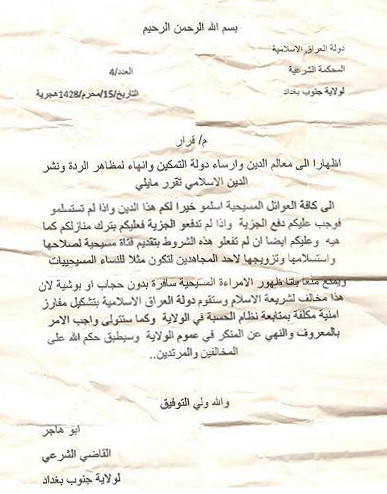 بسم الله الرحمن الرحيم
دولة العراق الاسلامية
المحكمة الشرعية
العدد/4
لولاية جنوب بغداد
التاريخ/15/محرم/1428هجرية
م/ قرار
اظهارا الى معالم الدين وارساء دولة التمكين وانهاء لمظاهر الردة ونشر
الدين الاسلامي تقرر مايلي
الى كافة العوائل المسيحية اسلمو خيرا لكم هذا الدين واذا لم تستسلمو
فوجب عليكم دفع الجزية واذا لم تدفعو الجزية فعليكم بترك منازلكم كما
هيه وعليكم ايضا ان لم تفعلو هذه الشروط بتقديم فتاة مسيحية لصلاحها
واستسلامها وتزويجها لاحد المجاهدين لتكون مثلا للنساء المسيحييات
ويمنع منعا باتا ظهور الامراءة المسيحية سافرة بدون حجاب او بوشية لان
هذا مخالف لشريعة الاسلام وستقوم دولة العراق الاسلامية بتشكيل مفارز
امنية مكلفة بمتابعة نظام الحسبة في الولاية وكما ستتولى واجب الامر
بالمعروف والنهي عن المنكر في عموم الولاية وسيطبق حكم الله على
المخالفين والمرتدين..
والله ولي التوفيق
ابو هاجر
القاضي الشرعي
لولاية جنوب بغداد